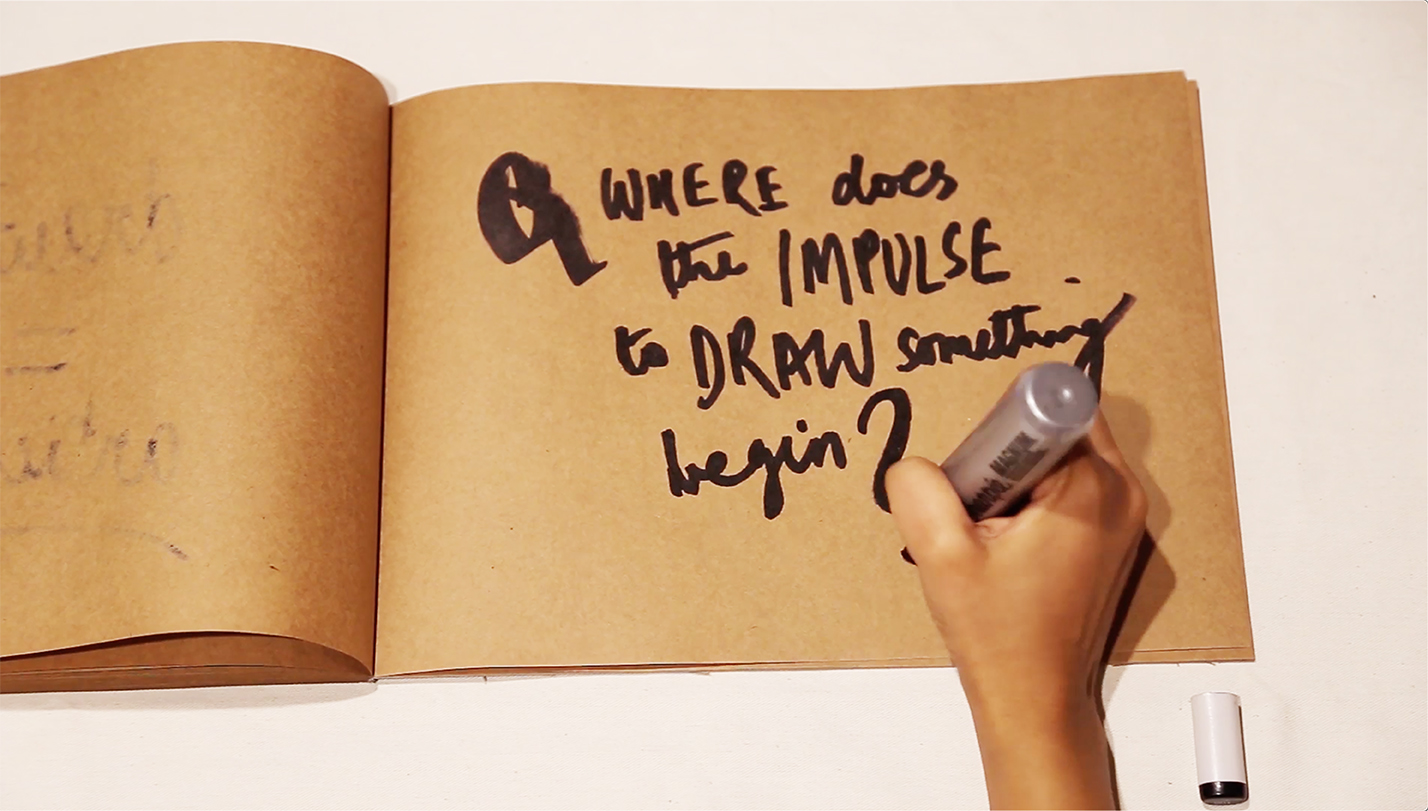 Q WHERE does
the IMPULSE
to DRAW something
begin?
MAGNUM